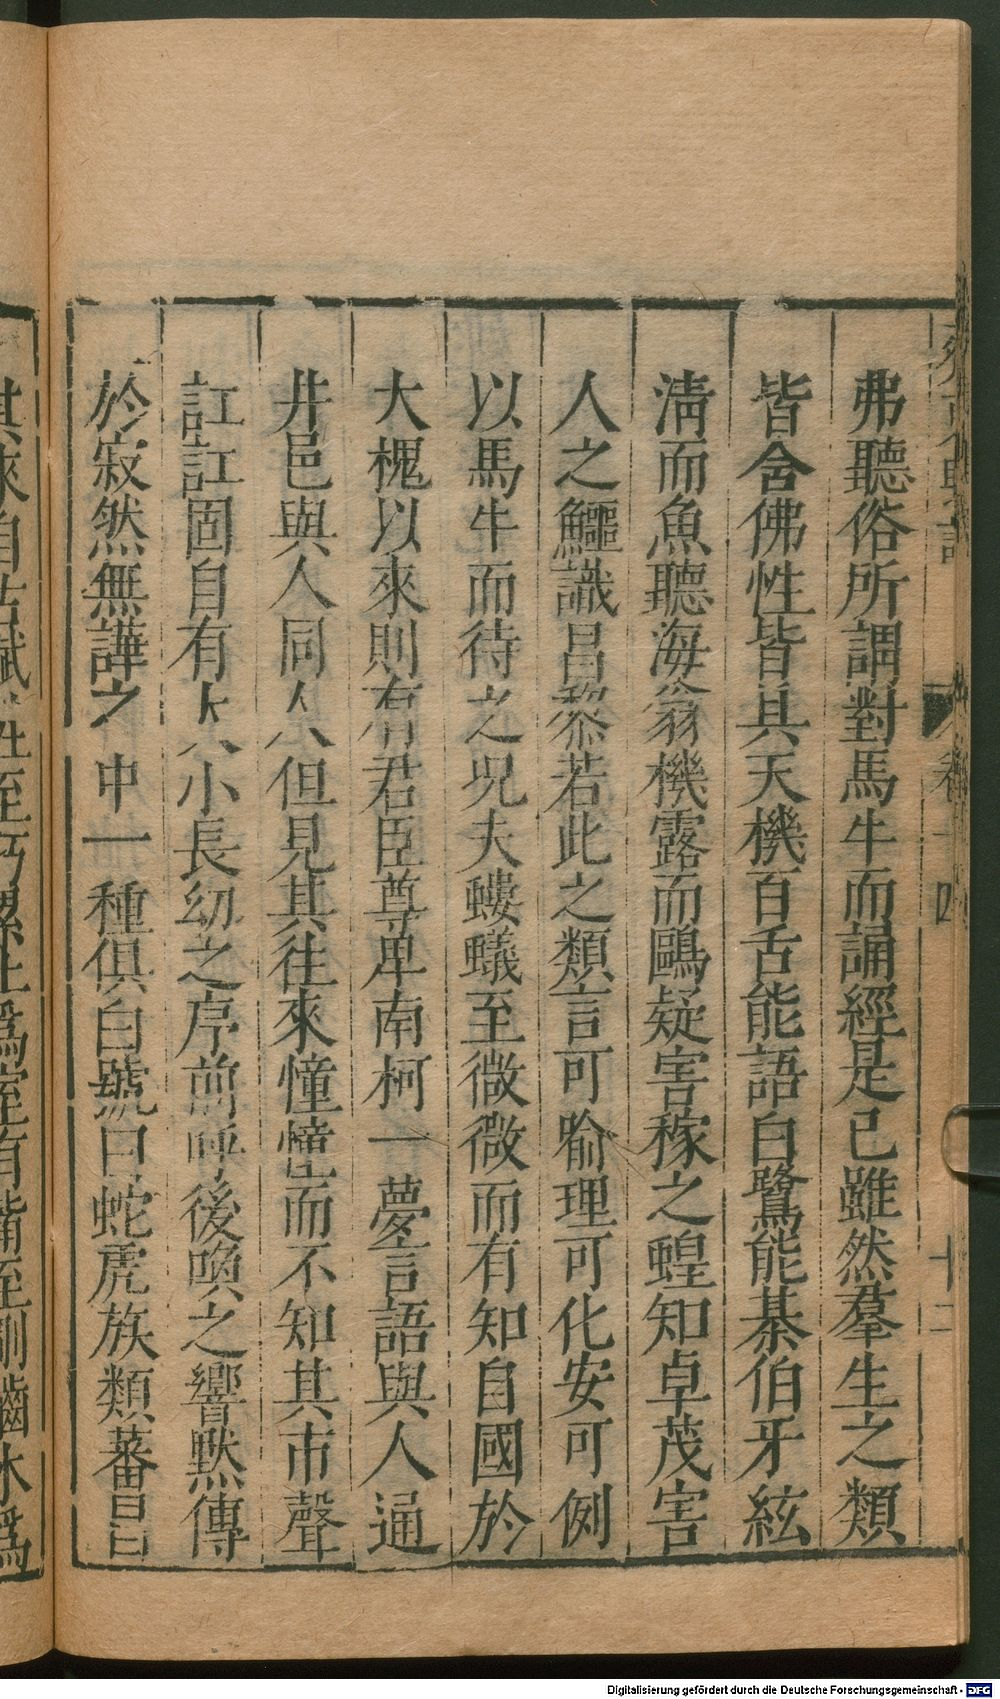 弗聽俗所謂對馬牛而誦經是已雖然羣生之類
皆含佛性皆具天機百舌能語白鷺能棊伯牙絃
清而魚聽海翁機露而鷗疑害稼之蝗知卓茂害
人之鱷識昌黎若此之類言可喻理可化安可例
以馬牛而待之况夫螻蟻至微微而有知自國於
大槐以來則有君臣尊卑南柯一夢言語與人通
井邑與人同人但見其往來憧憧而不知其市聲
訌訌固自有大小長幼之序前呼後喚之響默傳
於寂然無譁之中一種俱自號曰蛇虎族類蕃昌
卷十四
十二
Digitalisierung gefördert durch die Deutsche Forschungsgemeinschaft - DFG